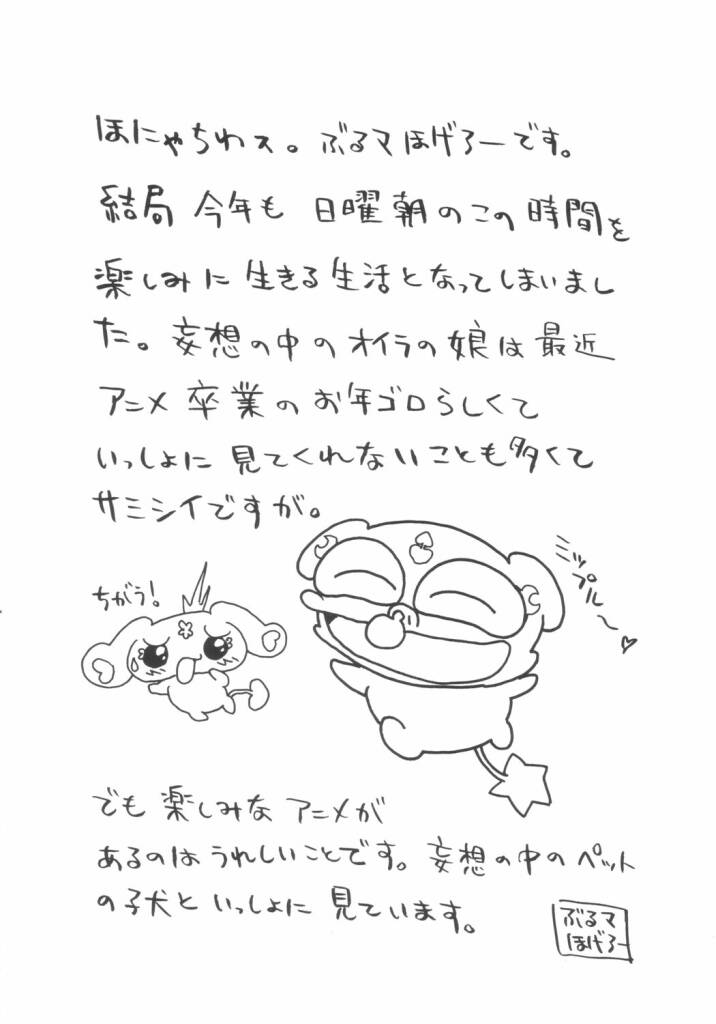 ほにゃちわス。ぶるマほげろーです。
結局今年も日曜朝のこの時間を
楽しみに生きる生活となってしまいまし
た。妄想の中のオイラの娘は最近
アニメ卒業のお年ゴロらしくて
いっしょに見てくれないことも多くて
サミシイですが。
ミップル〜♡
ちがう!
でも楽しみなアニメが
あるのはうれしいことです。妄想の中のペット
の子犬といっしょに見ています。
ぶるマ
ほげろー